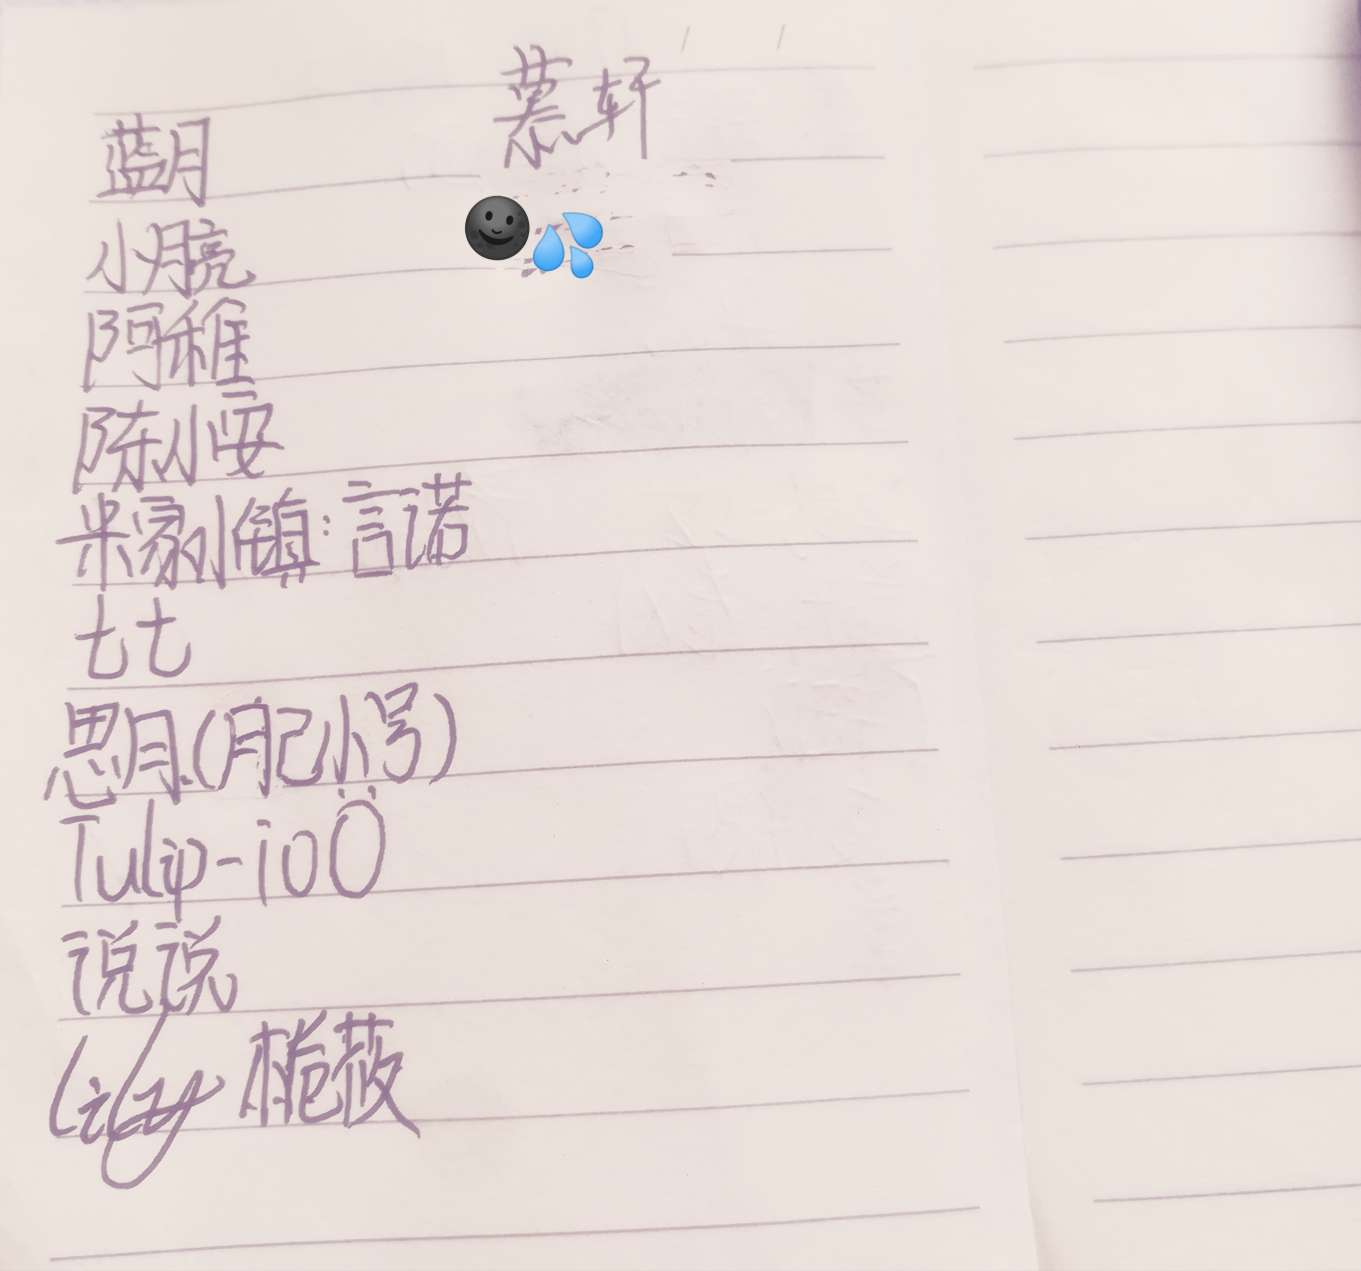 慕轩
蓝月
小月亮
阿稚
陈小安
米家小镇:言诺
七七
思月(月己小号)
Tulip-ioÖ
说说
Lily 栀莜